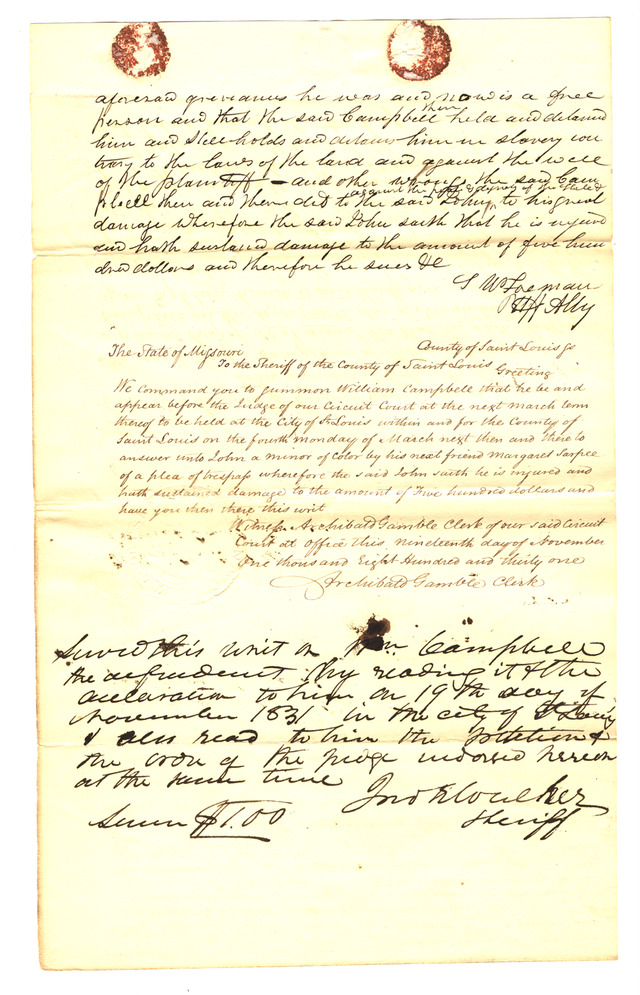 aforesaid grievances he was and now is a free
person and that the said Campbell then held and detained
him and still holds and detains him in slavery con
trary to the laws of the land and against the will
of the plaintiff – and other wrongs the said Cam
against the peace & dignity of the state &
pbell then and there did to the said John, to his great
damage wherefore the said John saith that he is injured
and hath sustained damage to the amount of five hun
dred dollars and therefore he sues &c
Plff Atty
The State of Missouri County of Saint Louis ss
To the Sheriff of the County of Saint Louis Greeting
We command you to summon William Campbell that he be and
appear before the Judge of our Circuit Court at the next March term
thereof to be held at the City of St Louis within and for the County of
Saint Louis on the fourth Monday of March next then and there to
answer unto John a minor of Color by his next friend Margaret Sarpee
of a plea of trespass wherefore the said John saith he is injured and
hath sustained damage to the amount of Five hundred dollars and
have you then there this writ
Witness Archibald Gamble Clerk of our said Circuit
Court at office this nineteenth day of November
One thousand Eight Hundred and thirty one
Archibald Gamble Clerk
Served this writ on Wm Campbell
the defendant by reading it & the
declaration to him on 19th day of
November 1831 in the city of St Louis
& also read to him the petition &
the order of the judge endorsed hereon
at the same time
Jno K Walker
$1.00 Sheriff